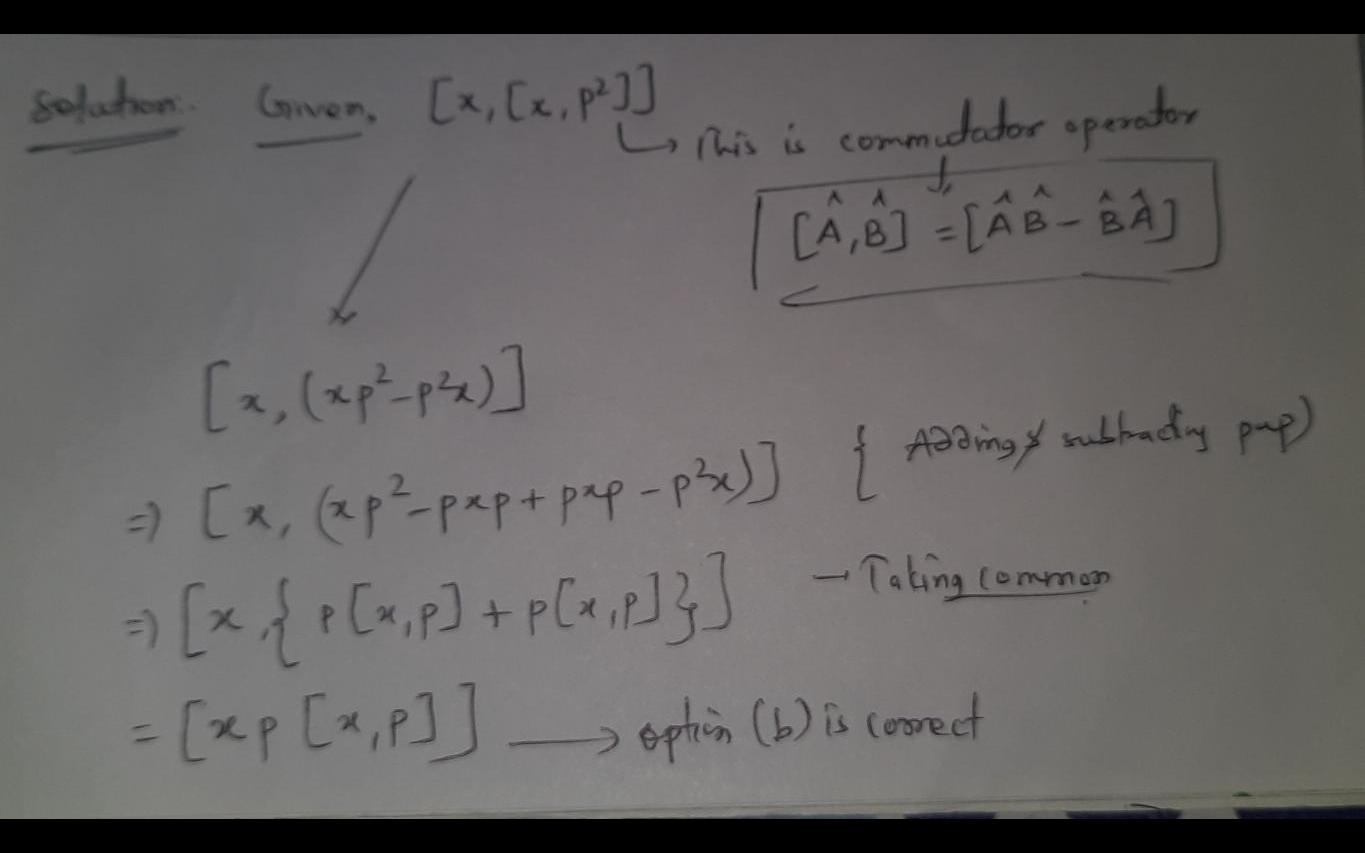 Solution: Given, [x, [x, p²]]
↳ This is commutator operator
[Â, B̂] = [Â B̂ - B̂ Â]
[x, (xp² - p²x)]
⇒ [x, (xp² - pxp + pxp - p²x)] { Adding & subtracting pxp)
⇒ [x, { p[x, p] + p[x, p] }] - Taking common
= [x p [x, p]] ⟶ option (b) is correct